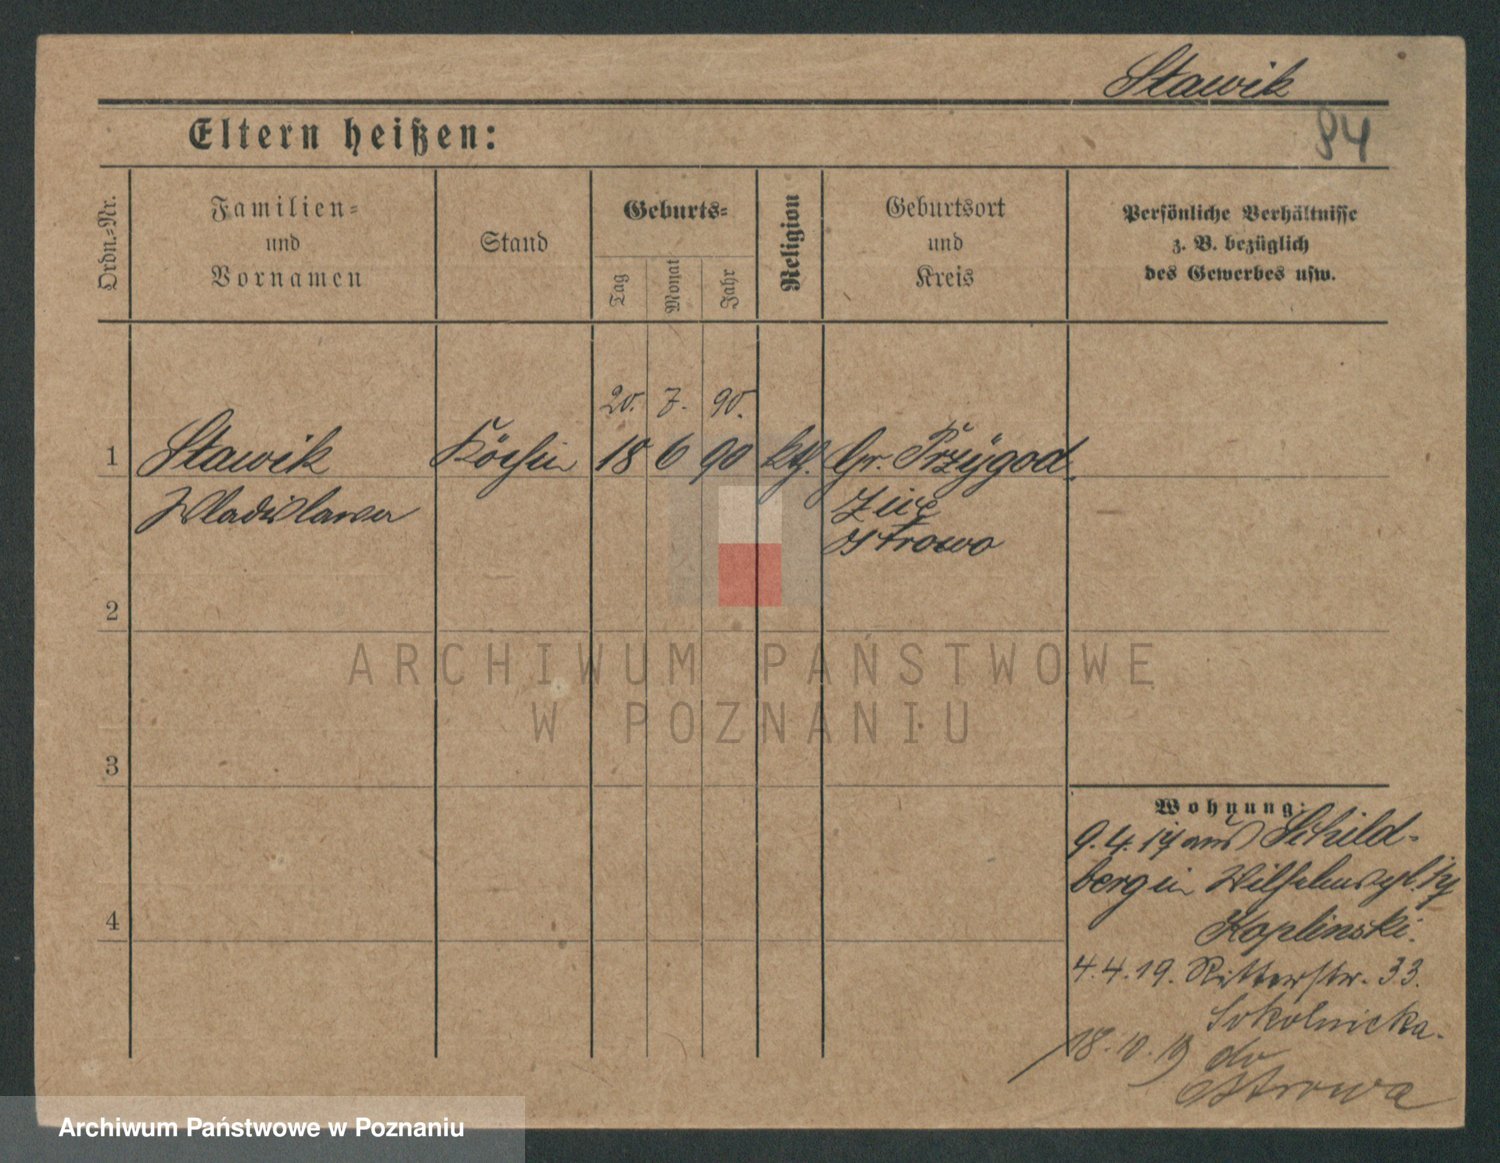 Stawik
Eltern heißen:
94
Ordn.-Nr.
Familien-
und
Vornamen
Stand
Geburts-
Tag
Monat
Jahr
Religion
Geburtsort
und
Kreis
Persönliche Verhältnisse
z. B. bezüglich
des Gewerbes usw.
20. 7. 90.
1 Stawik Köchin 18 6 90 kth. Gr. Przygod
Wladislawa zice
Ostrowo
2
3
4
ARCHIWUM PAŃSTWOWE
W POZNANIU
Wohnung:
9.4.17 aus Schild-
berg in Wilhelmspl. 17
Koplinski.
4.4.19. Ritterstr. 33.
Sokolnicka.
18.10.19 do
Ostrowa
Archiwum Państwowe w Poznaniu